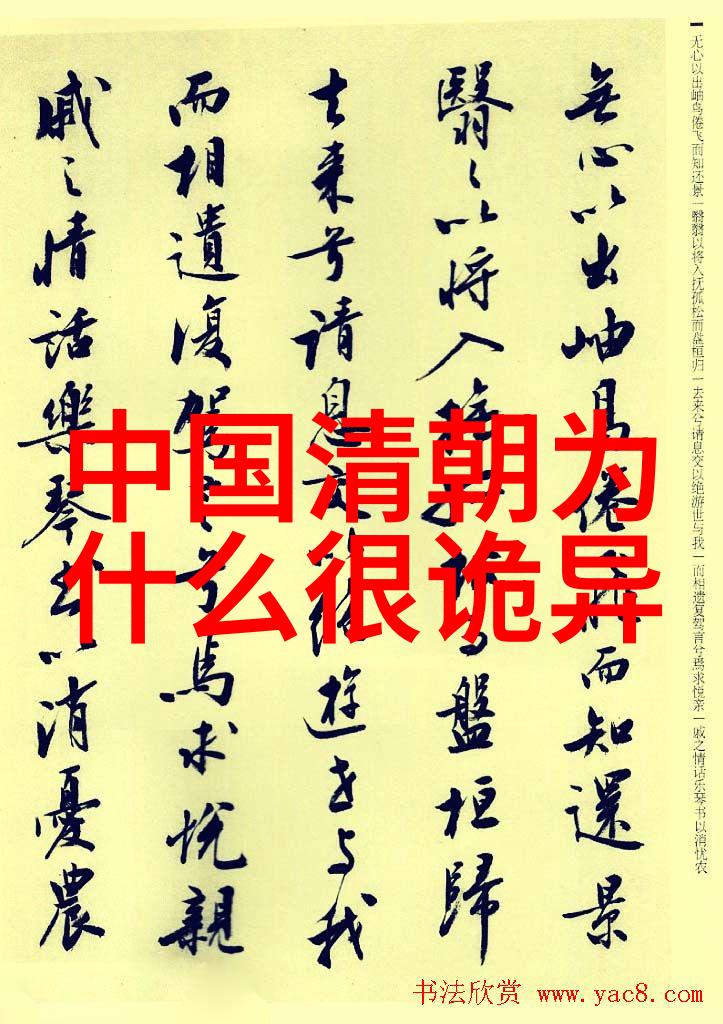 无心以出岫鸟倦飞而知还景一翳翳以将入抚孤松而盘桓归一去来兮请息交以绝游世与我一而相遗复驾言兮焉求悦亲一戚之情话乐琴书以消忧农
無心以出岫鳥倦飛而知還景
翳々以将入撫孤松而盤桓歸
去来兮请息交以絶遊世与我
而相遺復駕言兮焉求悦親
戚々情話樂琴書以消憂農
中国清朝为
什么很诡异
书法欣赏 www.yac8.com